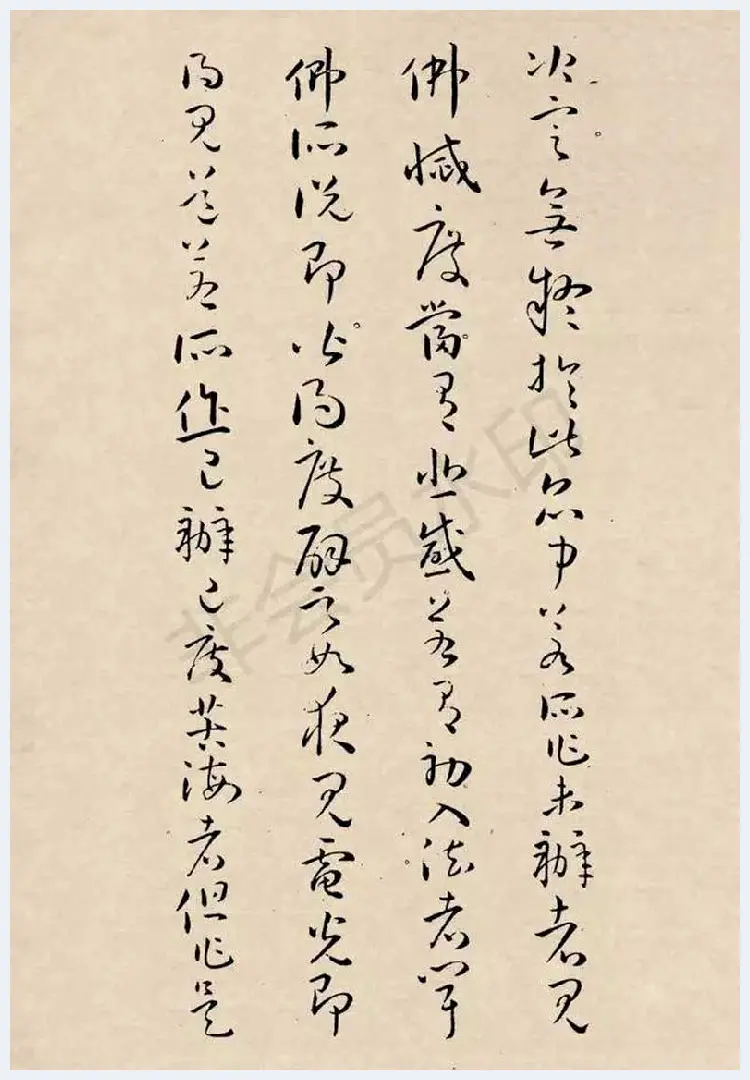 次定無疑於此众中若所作未辦者見
佛滅度當有悲感若有初入法者聞
佛所说即皆得度譬之如夜見電光即
得見道若所作已辦已度苦海者但作是
非会员水印